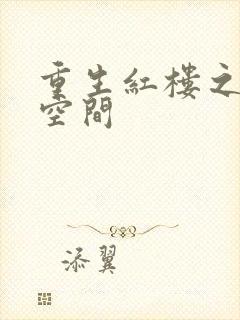 重生紅樓之
空間
添翼